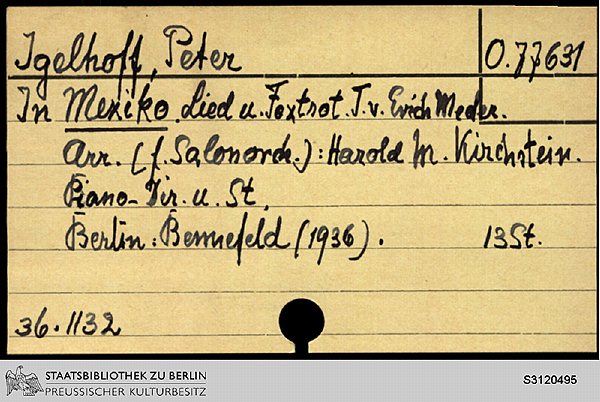 Igelhoff, Peter O.77631
In Mexiko. Lied u. Foxtrot. T. v. Erich Meder.
Arr. (f. Salonorch.): Harold M. Kirchstein.
Piano-Dir. u. St.
Berlin: Bennefeld (1936). 13 St.
36.1132
STAATSBIBLIOTHEK ZU BERLIN
PREUSSISCHER KULTURBESITZ
S3120495